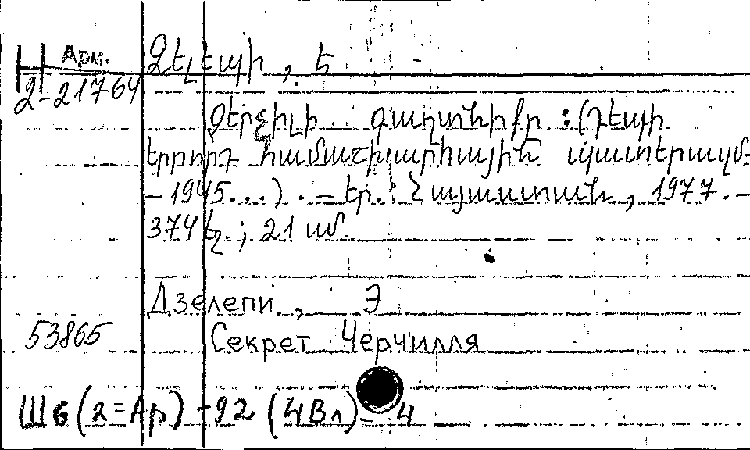 Арм.
2-21764
Ձելեպի, Է
Չերչիլի գաղտնիքը : (Դեպի
երրորդ համաշխարհային պատերազմ
- 1945...). - Եր.: Հայաստան, 1977. -
374 էջ ; 21 սմ.
Дзелепи, Э
53865
Секрет Черчилля
Ш6(2=Ар) -92 (4Вл) - 4